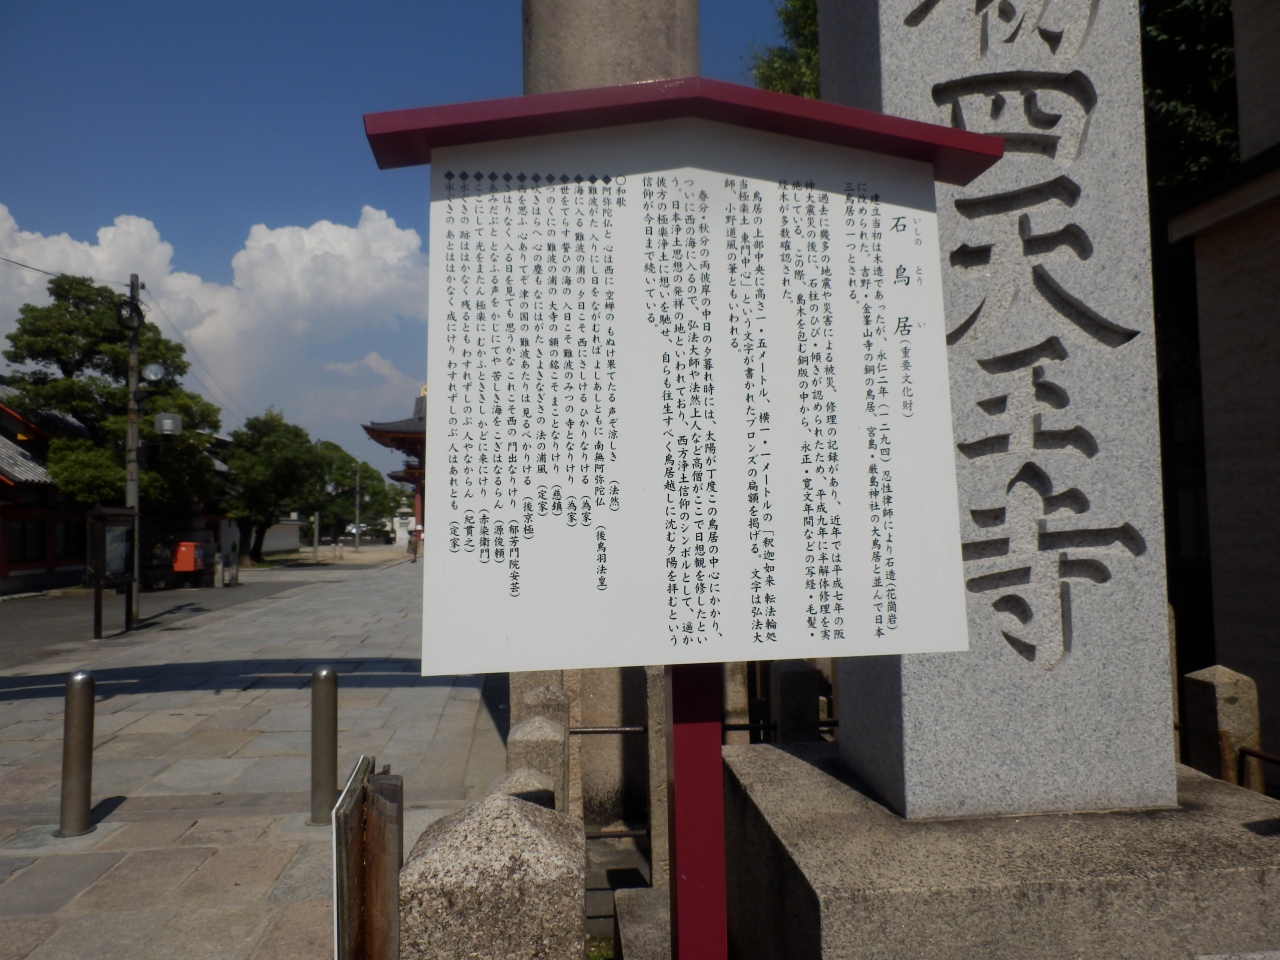 石鳥居(重要文化財)
いしの とり い
建立当初は木造であったが、永仁二年(一二九四)忍性律師により石造(花崗岩)
に改められた。吉野・金峯山寺の銅の鳥居、宮島・厳島神社の大鳥居と並んで日本
三鳥居の一つとされる。
過去に幾多の地震や災害による被災、修理の記録があり、近年では平成七年の阪
神大震災の後に、石柱のひび・傾きが認められたため、平成九年に半解体修理を実
施している。この際、島木を包む銅版の中から、永正・寛文年間などの写経・毛髪・
経木が多数確認された。
鳥居の上部中央に高さ一・五メートル、横一・一メートルの「釈迦如来 転法輪処
当極楽土 東門中心」という文字が書かれたブロンズの扁額を掲げる。文字は弘法大
師、小野道風の筆ともいわれる。
春分・秋分の両彼岸の中日の夕暮れ時には、太陽が丁度この鳥居の中心にかかり、
ついに西の海に入るので、弘法大師や法然上人など高僧がここで日想観を修したとい
う。日本浄土思想の発祥の地といわれており、西方浄土信仰のシンボルとして、遥か
彼方の極楽浄土に想いを馳せ、自らも往生すべく鳥居越しに沈む夕陽を拝むという
信仰が今日まで続いている。
○和歌
◆阿弥陀仏と心は西に空蝉の もぬけ果てたる声ぞ涼しき (法然)
◆難波がた入りにし日をながむれば よしあしともに南無阿弥陀仏 (後鳥羽法皇)
◆海に入る難波の浦の夕日こそ 西にさしける ひかりなりける (為家)
◆世をてらす誓ひの海の入日こそ 難波のみつの寺となりけり (為家)
◆つのくにの難波の浦の大寺の 額の銘こそまことなりけり (慈鎮)
◆吹きはらへ心の塵もなにはがた きよきなぎさの法の浦風 (定家)
◆西を思ふ心ありてぞ津の国の 難波あたりは見るべかりける (後京極)
◆さはりなく入る日を見ても思うかな これこそ西の門出なりけり (郁芳門院安芸)
◆あみだぶととなふる声をかじにてや 苦しき海をこぎはなるらん (源俊頼)
◆ここにして光をまたん極楽に むかふとききし かどに来にけり (赤染衛門)
◆水ぐきの跡ははかなく残るとも わすれずしのぶ人やなからん (紀貫之)
◆水ぐきのあとははかなく成にけり わすれずしのぶ人はあれとも (定家)
四天王寺